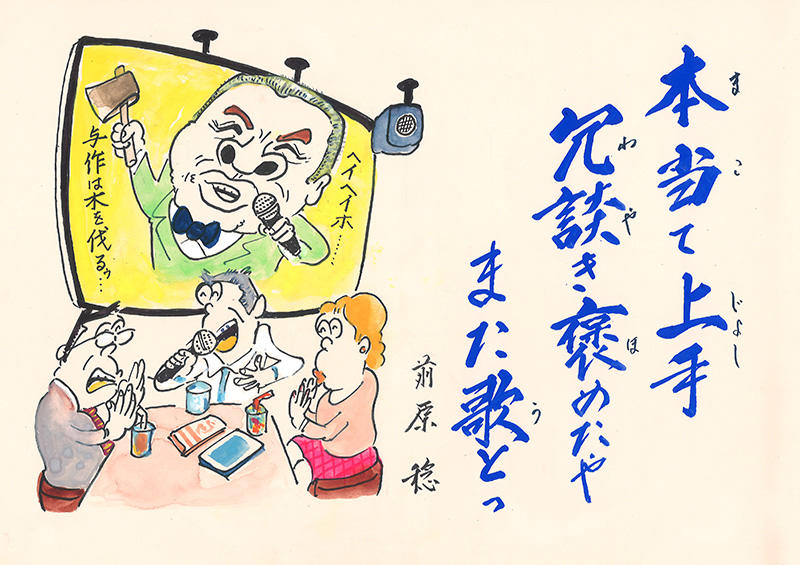 本当て上手
まこ じょし
冗談き褒めたや
わや ほ
また歌とっ
う
前原 稔
ヘイヘイホ……
与作は木を伐るゥ…